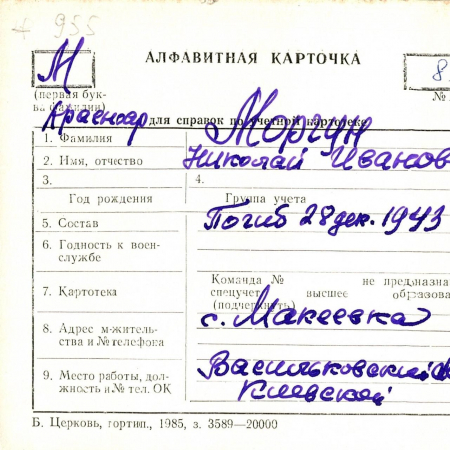 # 955
АЛФАВИТНАЯ КАРТОЧКА
М
8
(первая бук-
ва фамилии)
№
Красноар
для справок по учетной картотеке
1. Фамилия Моргун
2. Имя, отчество Николай Иванов
3. 4.
Год рождения Группа учета
5. Состав Погиб 28 дек. 1943
6. Годность к воен-
службе
Команда № не предназна
7. Картотека спецучет высшее образова
(подчеркнуть)
с. Макеевка
8. Адрес м-житель-
ства и № телефона
9. Место работы, дол- Васильковский
жность и № тел. ОК Киевской
Б. Церковь, гортип., 1985, з. 3589—20000